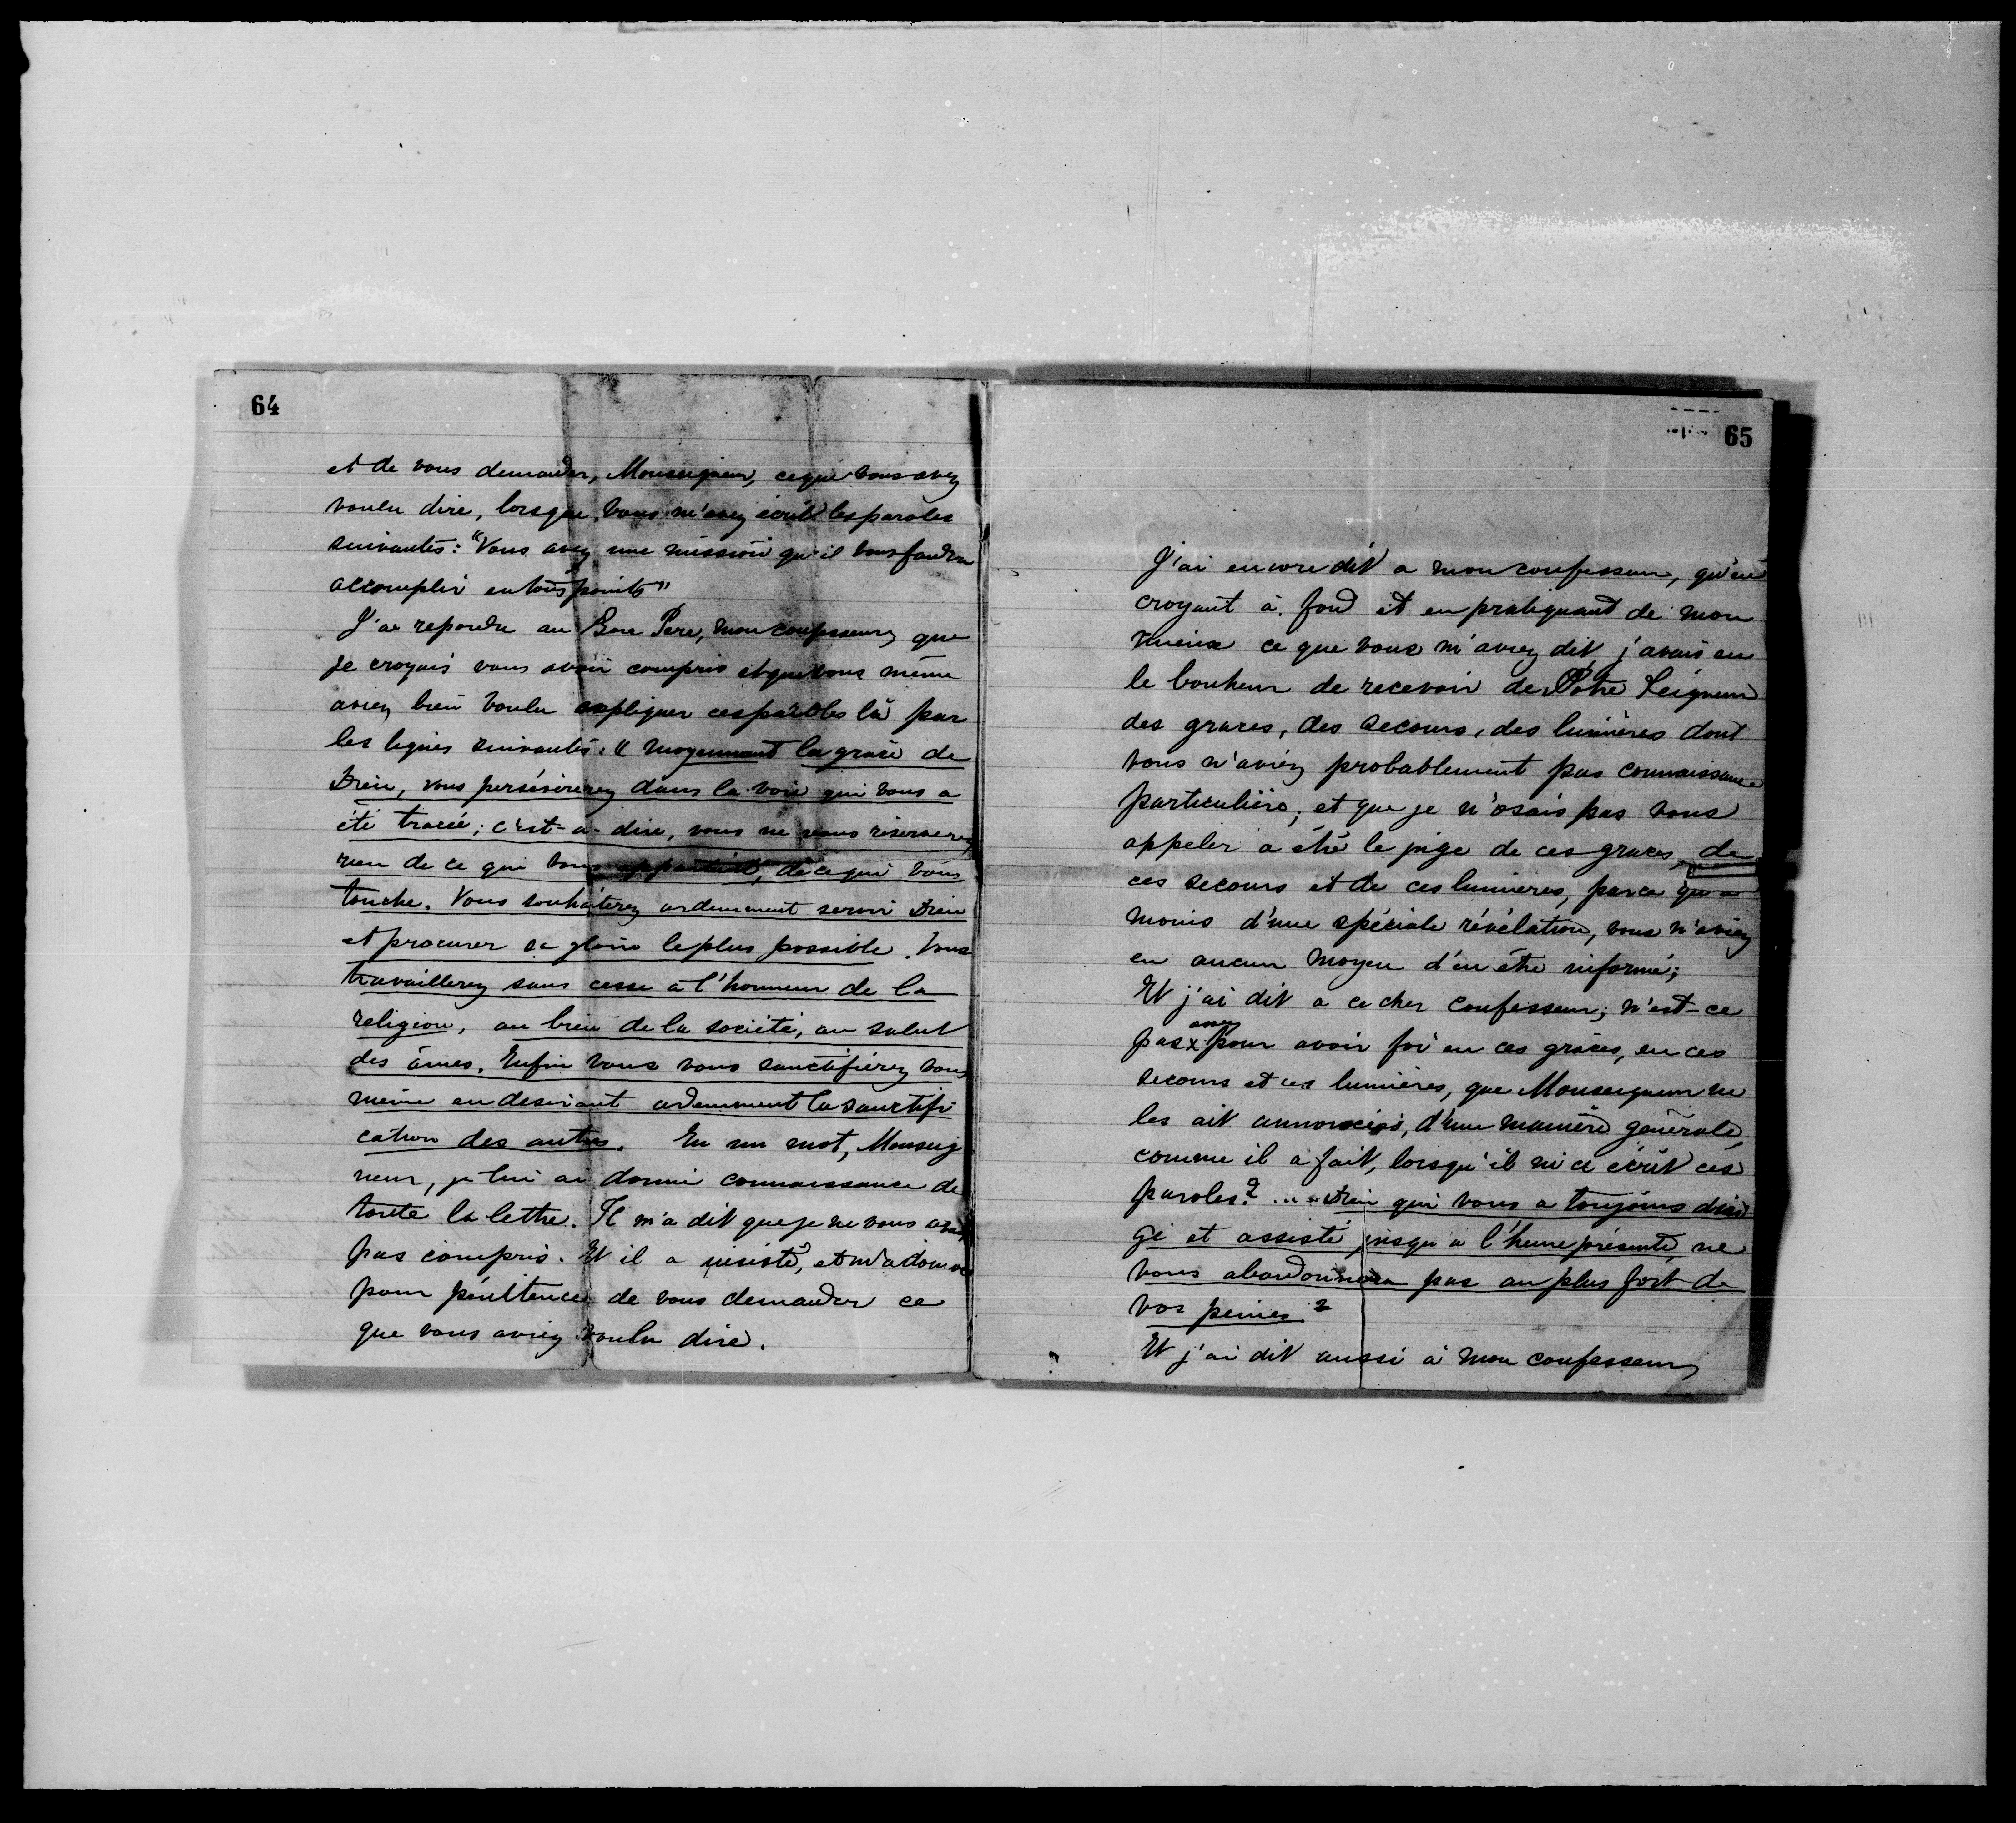 64
et de vous demander, Monseigneur, ce que vous avez
voulu dire, lorsque vous m'avez écrit les paroles
suivantes: "Vous avez une mission qu'il vous faudra
accomplir en tous points"
J'ai repondu au Bon Pere, mon confesseur, que
je croyais vous avoir compris et que vous même
aviez bien voulu expliquer ces paroles là par
les lignes suivantes: "Moyennant la grace de
Dieu, vous persévèrerez dans la voie qui vous a
été tracée; c'est-a-dire, vous ne vous réserverez
rien de ce qui vous appartient, de ce qui vous
touche. Vous souhaiterez ardemment servir Dieu
et procurer sa gloire le plus possible. Vous
travaillerez sans cesse à l'honneur de la
religion, au bien de la société, au salut
des âmes. Enfin vous vous sanctifierez vous
même en desirant ardemment la sanctifi
cation des autres. En un mot, Monseig
neur, je lui ai donné connaissance de
toute la lettre. Il m'a dit que je ne vous avais
pas compris. Et il a insisté, et m'a donné
pour pénitence de vous demander ce
que vous aviez voulu dire.
65
J'ai encore dit a mon confesseur, qu'en
croyant à fond et en pratiquant de mon
mieux ce que vous m'avez dit j'avais eu
le bonheur de recevoir de Notre Seigneur
des graces, des secours, des lumières dont
vous n'aviez probablement pas connaissance
particulière; et que je n'osais pas vous
appeler a être le juge de ces graces, de
ces secours et de ces lumieres, parce qu'a
moins d'une spéciale révélation, vous n'aviez
eu aucun moyen d'en être informé;
Et j'ai dit a ce cher confesseur; n'est-ce
assez
pas x pour avoir foi en ces grâces, en ces
secours et ces lumières, que Monseigneur me
les ait annoncés, d'une manière générale,
comme il a fait, lorsqu'il m'a écrit ces
paroles? .... Dieu qui vous a toujours diri
gé et assisté jusqu'a l'heure présente, ne
vous abandonnera pas au plus fort de
vos peines?
Et j'ai dit aussi à mon confesseur,